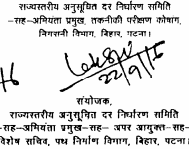 राज्यस्तरीय अनुसूचित दर निर्धारण समिति
-सह-अभियंता प्रमुख, तकनीकी परीक्षण कोषांग,
निगरानी विभाग, बिहार, पटना।
22/9/15
संयोजक,
राज्यस्तरीय अनुसूचित दर निर्धारण समिति
-सह-अभियंता प्रमुख-सह- अपर आयुक्त-सह-
विशेष सचिव, पथ निर्माण विभाग, बिहार, पटना।